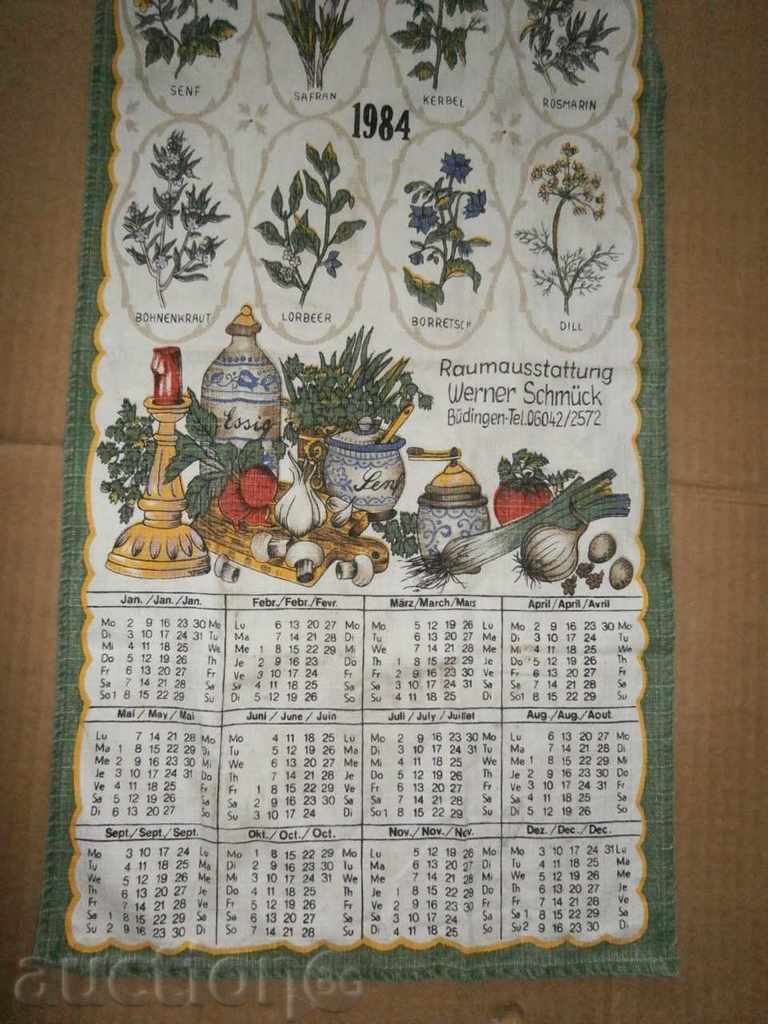 SENF SAFRAN KERBEL ROSMARIN
1984
BOHNENKRAUT LORBEER BORRETSCH DILL
Raumausstattung
Werner Schmück
Büdingen-Tel.06042/2572
Essig
Senf
Jan./Jan./Jan.
Mo 2 9 16 23 30 Me
Di 3 10 17 24 31 Tu
Mi 4 11 18 25 We
Do 5 12 19 26 Th
Fr 6 13 20 27 Fr
Sa 7 14 21 28 Sa
So 1 8 15 22 29 Su
Febr./Febr./Fevr.
Lu 6 13 20 27 Mo
Ma 7 14 21 28 Di
Me 1 8 15 22 29 Mi
Je 2 9 16 23 Do
Ve 3 10 17 24 Fr
Sa 4 11 18 25 Sa
Di 5 12 19 26 So
März/March/Mars
Mo 5 12 19 26 Lu
Tu 6 13 20 27 Ma
We 7 14 21 28 Me
Th 1 8 15 22 29 Je
Fr 2 9 16 23 30 Ve
Sa 3 10 17 24 31 Sa
Su 4 11 18 25 Di
April/April/Avril
Mo 2 9 16 23 30 Mo
Di 3 10 17 24 Tu
Mi 4 11 18 25 We
Do 5 12 19 26 Th
Fr 6 13 20 27 Fr
Sa 7 14 21 28 Sa
So 1 8 15 22 29 Su
Mai/May/Mai
Lu 7 14 21 28 Mo
Ma 1 8 15 22 29 Di
Me 2 9 16 23 30 Mi
Je 3 10 17 24 31 Do
Ve 4 11 18 25 Fr
Sa 5 12 19 26 Sa
Di 6 13 20 27 So
Juni/June/Juin
Mo 4 11 18 25 Lu
Tu 5 12 19 26 Ma
We 6 13 20 27 Me
Th 7 14 21 28 Je
Fr 1 8 15 22 29 Ve
Sa 2 9 16 23 30 Sa
Su 3 10 17 24 Di
Juli/July/Juillet
Mo 2 9 16 23 30 Mo
Di 3 10 17 24 31 Tu
Mi 4 11 18 25 We
Do 5 12 19 26 Th
Fr 6 13 20 27 Fr
Sa 7 14 21 28 Sa
So 1 8 15 22 29 Su
Aug./Aug./Aout
Lu 6 13 20 27 Mo
Ma 7 14 21 28 Di
Me 1 8 15 22 29 Mi
Je 2 9 16 23 30 Do
Ve 3 10 17 24 31 Fr
Sa 4 11 18 25 Sa
Di 5 12 19 26 So
Sept./Sept./Sept.
Mo 3 10 17 24 Lu
Tu 4 11 18 25 Ma
We 5 12 19 26 Me
Th 6 13 20 27 Je
Fr 7 14 21 28 Ve
Sa 1 8 15 22 29 Sa
Su 2 9 16 23 30 Di
Okt./Oct./Oct.
Mo 1 8 15 22 29 Mo
Di 2 9 16 23 30 Tu
Mi 3 10 17 24 31 We
Do 4 11 18 25 Th
Fr 5 12 19 26 Fr
Sa 6 13 20 27 Sa
So 7 14 21 28 Su
Nov./Nov./Nov.
Lu 5 12 19 26 Mo
Ma 6 13 20 27 Di
Me 7 14 21 28 Mi
Je 1 8 15 22 29 Do
Ve 2 9 16 23 30 Fr
Sa 3 10 17 24 Sa
Di 4 11 18 25 So
Dez./Dec./Dec.
Mo 3 10 17 24 31 Lu
Tu 4 11 18 25 Ma
We 5 12 19 26 Me
Th 6 13 20 27 Je
Fr 7 14 21 28 Ve
Sa 1 8 15 22 29 Sa
Su 2 9 16 23 30 Di
auction BG